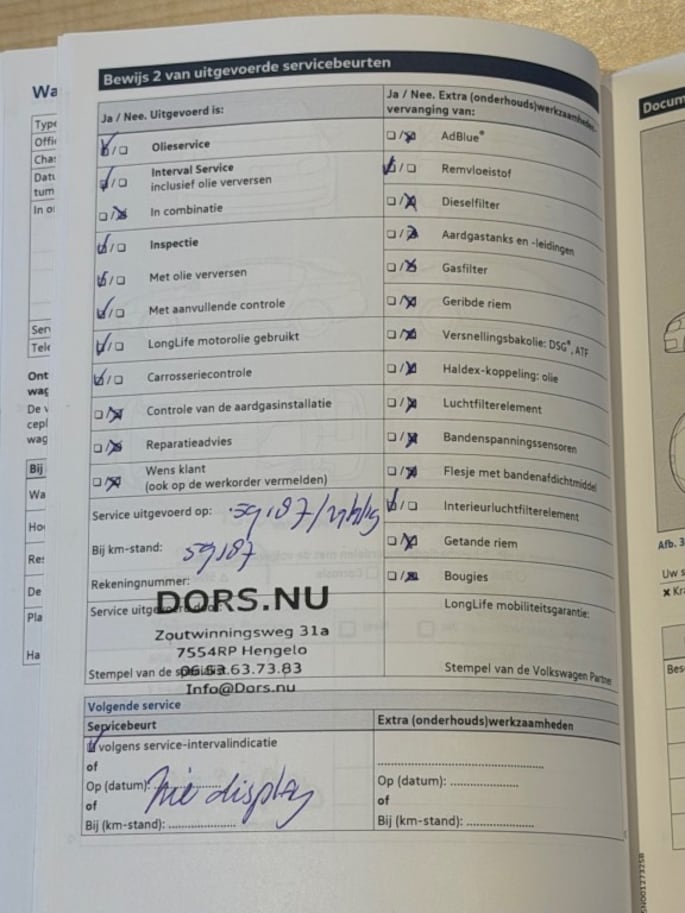 Wa
Type
Offi
Cha
Datu
tum
In o
Ser
Tele
Ont
wag
De v
cepl
wag
Bij
Wa
Ho
Re
De
Pla
Ha
Bewijs 2 van uitgevoerde servicebeurten
Ja / Nee. Uitgevoerd is:
Olieservice
Interval Service
inclusief olie verversen
In combinatie
Inspectie
Met olie verversen
Met aanvullende controle
LongLife motorolie gebruikt
Carrosseriecontrole
Controle van de aardgasinstallatie
Reparatieadvies
Wens klant
(ook op de werkorder vermelden)
Service uitgevoerd op:
Bij km-stand: 59187
Rekeningnummer:
DORS.NU
Service uitgevoerd door:
Zoutwinningsweg 31a
7554RP Hengelo
06.53.63.73.83
Stempel van de specialist
Info@Dors.nu
Ja / Nee. Extra (onderhouds)werkzaamheden,
vervanging van:
AdBlue®
Remvloeistof
Dieselfilter
Aardgastanks en -leidingen
Gasfilter
Geribde riem
Versnellingsbakolie: DSG®, ATF
Haldex-koppeling: olie
Luchtfilterelement
Bandenspanningssensoren
Flesje met bandenafdichtmiddel
Interieurluchtfilterelement
Getande riem
Bougies
LongLife mobiliteitsgarantie:
Stempel van de Volkswagen Partner
Volgende service
Servicebeurt
volgens service-intervalindicatie
of
Op (datum):
Zie display
of
Bij (km-stand):
Extra (onderhouds)werkzaamheden
Op (datum):
of
Bij (km-stand):
Docum
Afb. 3
Uw s
× Kra
Bes
5N0012732SB